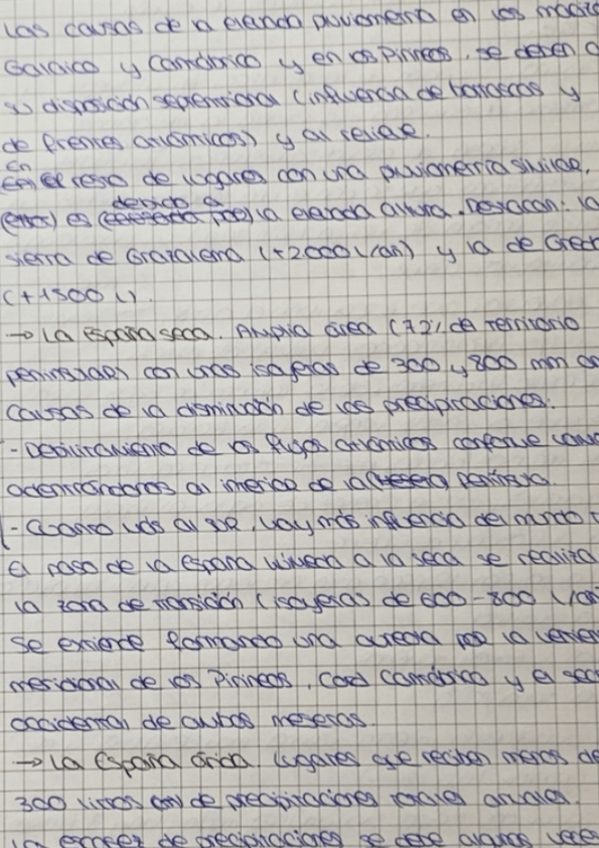 Las causas de la elevada pluviometría en los maciz
Galaico y Cantábrico y en los Pirineos, se deben a
su disposición septentrional (influencia de borrascas y
de frentes atlánticos) y al relieve.
En el resto de lugares con una pluviometría similar,
es debido a la elevada altura. Destacan: la
sierra de Grazalema (+2000 l/an) y la de Gred
(+1500 l).
→ La España seca. Amplia área (72% de territorio
peninsular) con unas isoyetas de 300 y 800 mm
Causas de la disminución de las precipitaciones:
- Debilitamiento de los flujos atlánticos conforme vam
adentrándonos al interior de la península
- Cuanto más al sur, hay más influencia del
El paso de la España húmeda a la seca se realiza
la zona de transición (isoyetas de 600-800 l/an
Se extiende formando una aureola por la
meridional de los Pirineos, Cord Cantábrica y el sec
occidental de ambas mesetas
→ La España árida. Lugares que reciben menos de
300 litros de precipitaciones totales anuales.
de precipitaciones se debe